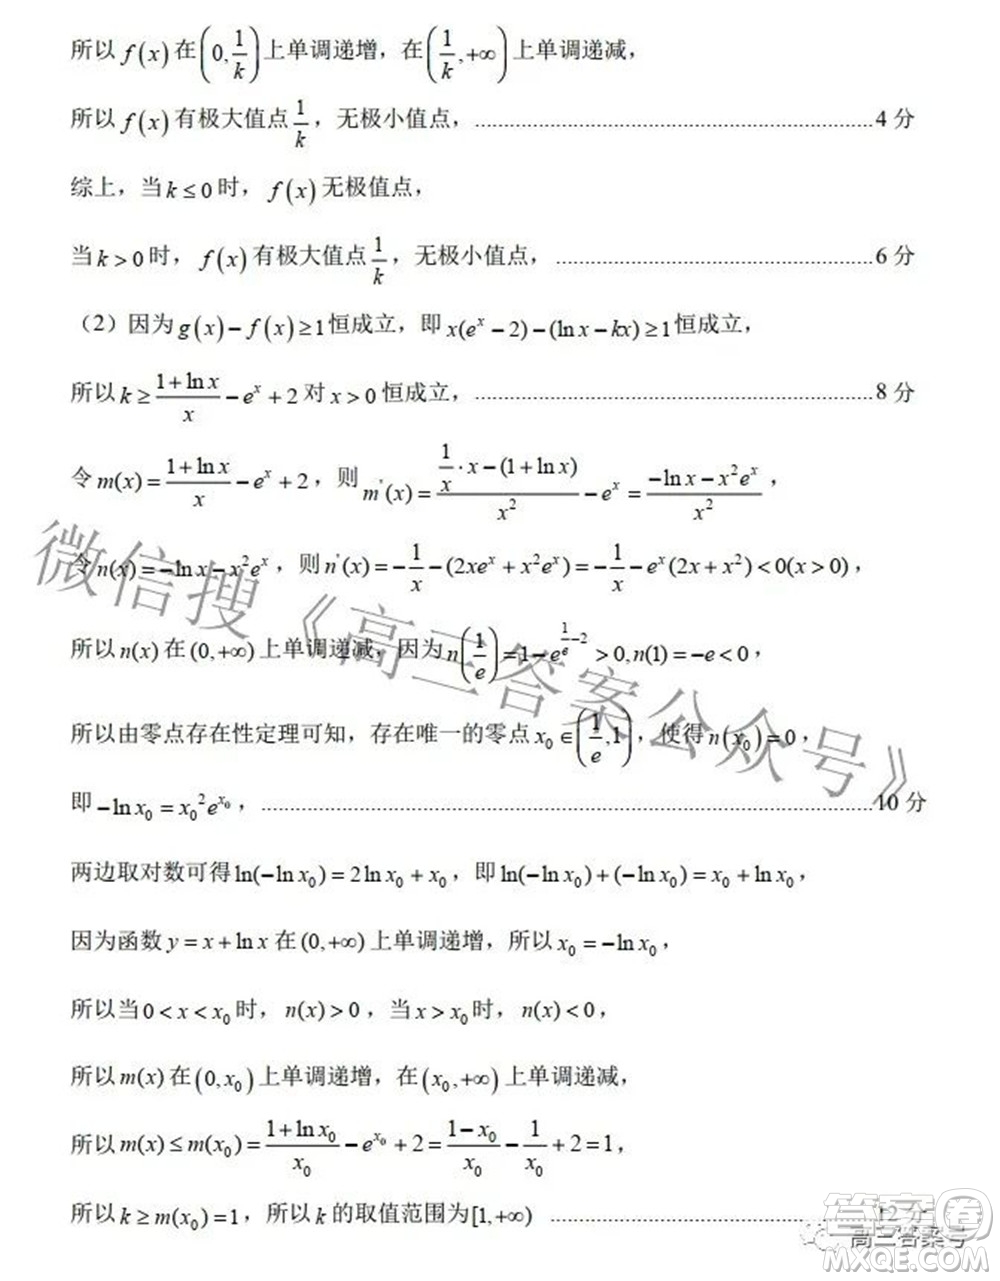 所以 f(x) 在 (0, 1/k) 上单调递增，在 (1/k, +∞) 上单调递减，
所以 f(x) 有极大值点 1/k，无极小值点，……4 分
综上，当 k ≤ 0 时，f(x) 无极值点，
当 k > 0 时，f(x) 有极大值点 1/k，无极小值点，……6 分
（2）因为 g(x) − f(x) ≥ 1 恒成立，即 x(e^x − 2) − (ln x − kx) ≥ 1 恒成立，
所以 k ≥ (1 + ln x)/x − e^x + 2 对 x > 0 恒成立，……8 分
令 m(x) = (1 + ln x)/x − e^x + 2，则 m'(x) = (1/x · x − (1 + ln x))/x² − e^x = (−ln x − x²e^x)/x²，
令 n(x) = −ln x − x²e^x，则 n'(x) = −1/x − (2xe^x + x²e^x) = −1/x − e^x(2x + x²) < 0(x > 0)，
所以 n(x) 在 (0, +∞) 上单调递减，因为 n(1/e) = 1 − e^(1/e − 2) > 0, n(1) = −e < 0，
所以由零点存在性定理可知，存在唯一的零点 x₀ ∈ (1/e, 1)，使得 n(x₀) = 0，
即 −ln x₀ = x₀²e^(x₀)，……10 分
两边取对数可得 ln(−ln x₀) = 2ln x₀ + x₀，即 ln(−ln x₀) + (−ln x₀) = x₀ + ln x₀，
因为函数 y = x + ln x 在 (0, +∞) 上单调递增，所以 x₀ = −ln x₀，
所以当 0 < x < x₀ 时，n(x) > 0，当 x > x₀ 时，n(x) < 0，
所以 m(x) 在 (0, x₀) 上单调递增，在 (x₀, +∞) 上单调递减，
所以 m(x) ≤ m(x₀) = (1 + ln x₀)/x₀ − e^(x₀) + 2 = (1 − x₀)/x₀ − 1/x₀ + 2 = 1，
所以 k ≥ m(x₀) = 1，所以 k 的取值范围为[1, +∞) ……12 分
微信搜《高三答案公众号》
答案圈
高三答案号
MXQE.COM